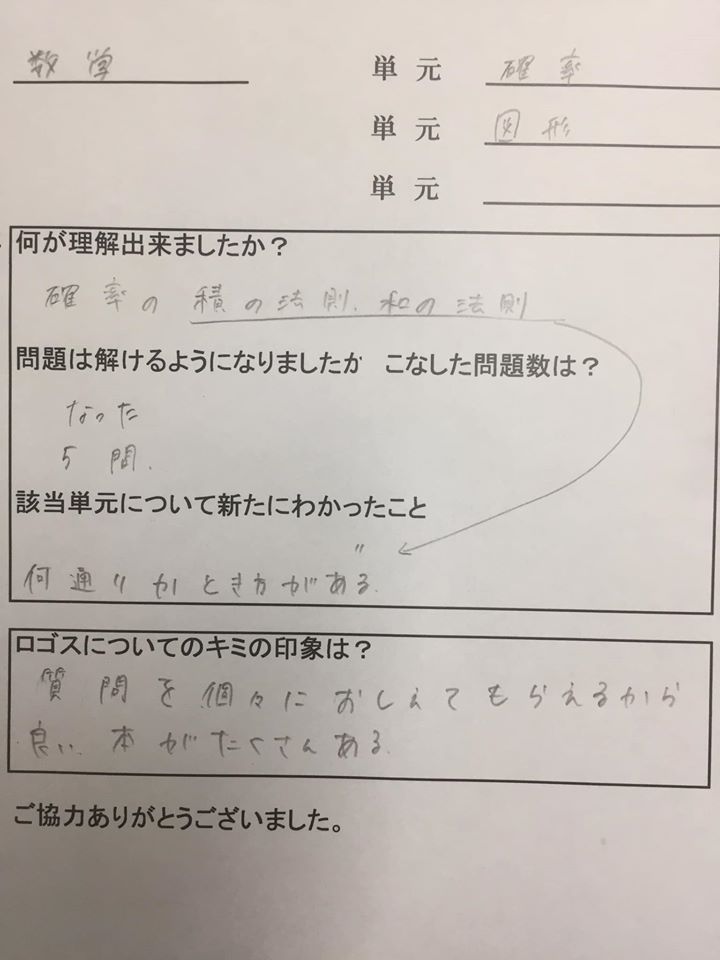 数学 単元 確率
単元 図形
単元
何が理解出来ましたか？
確率の積の法則.和の法則
問題は解けるようになりましたか こなした問題数は？
なった
5問.
該当単元について新たにわかったこと
〃
何通りかとき方がある.
ロゴスについてのキミの印象は？
質問を個々におしえてもらえるから
良い.本がたくさんある.
ご協力ありがとうございました。